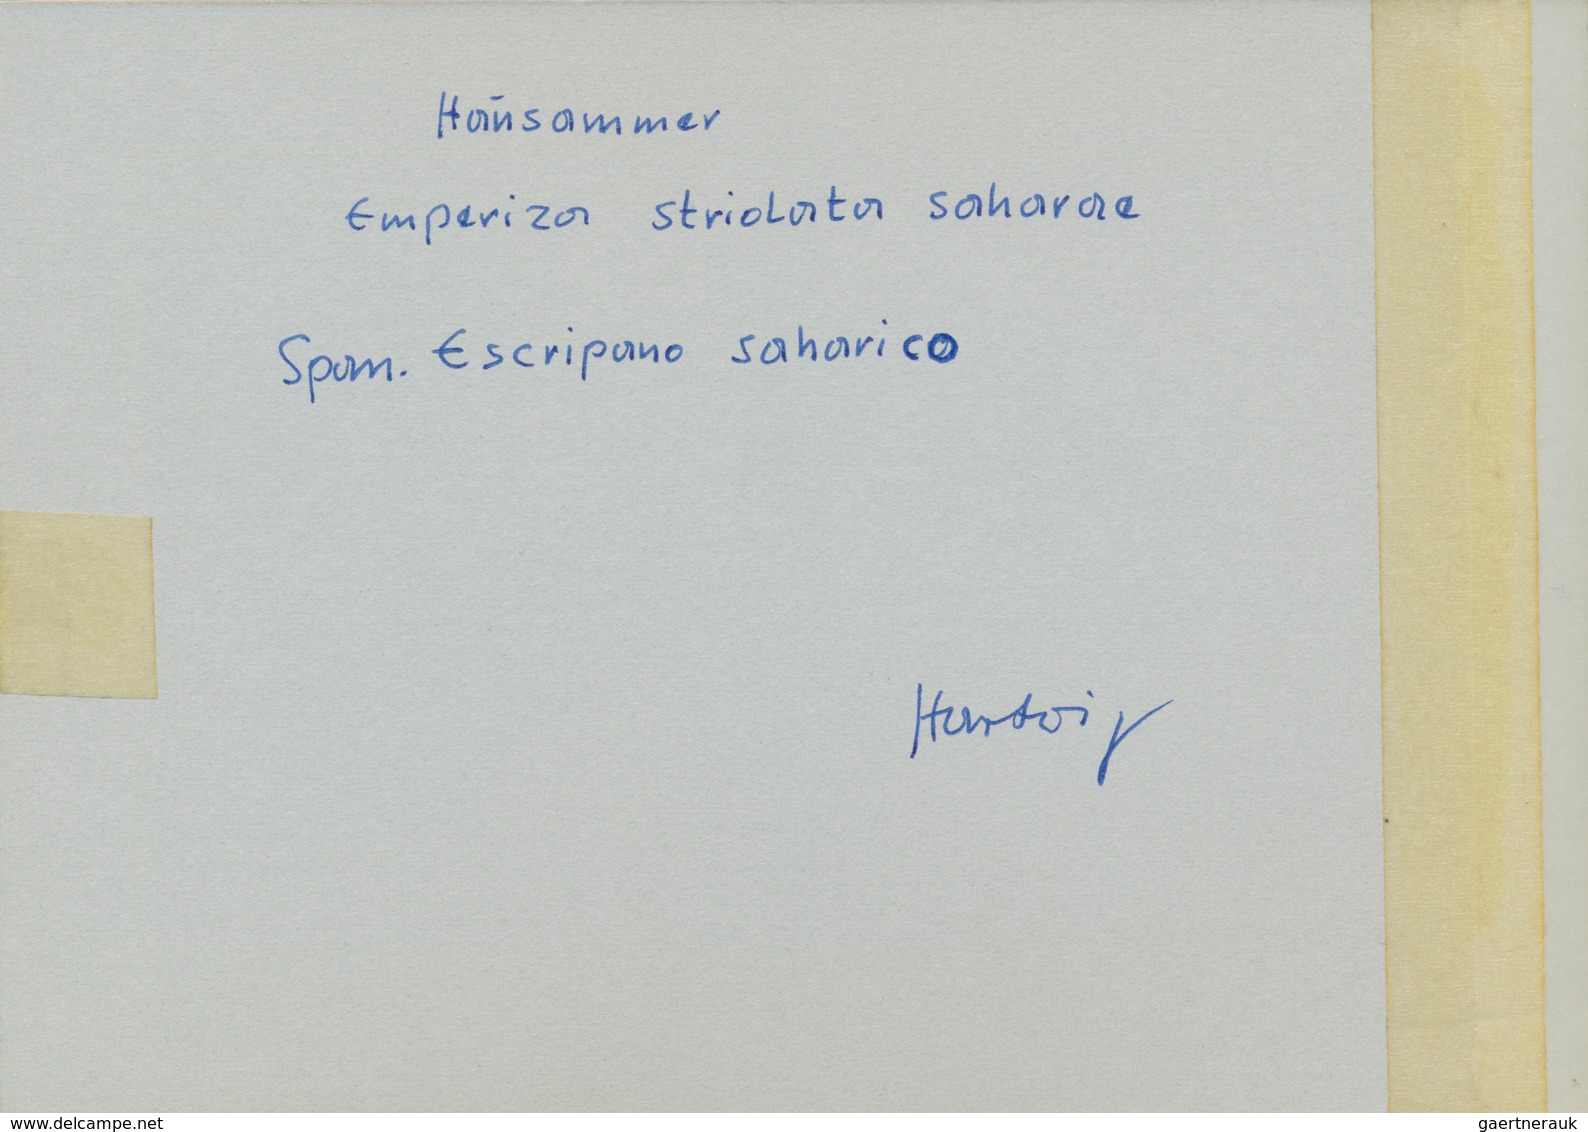 Haūsammer
Emperiza striolata saharae
Span. Escripano saharico
Hartwig
www.delcampe.net
gaertnerauk